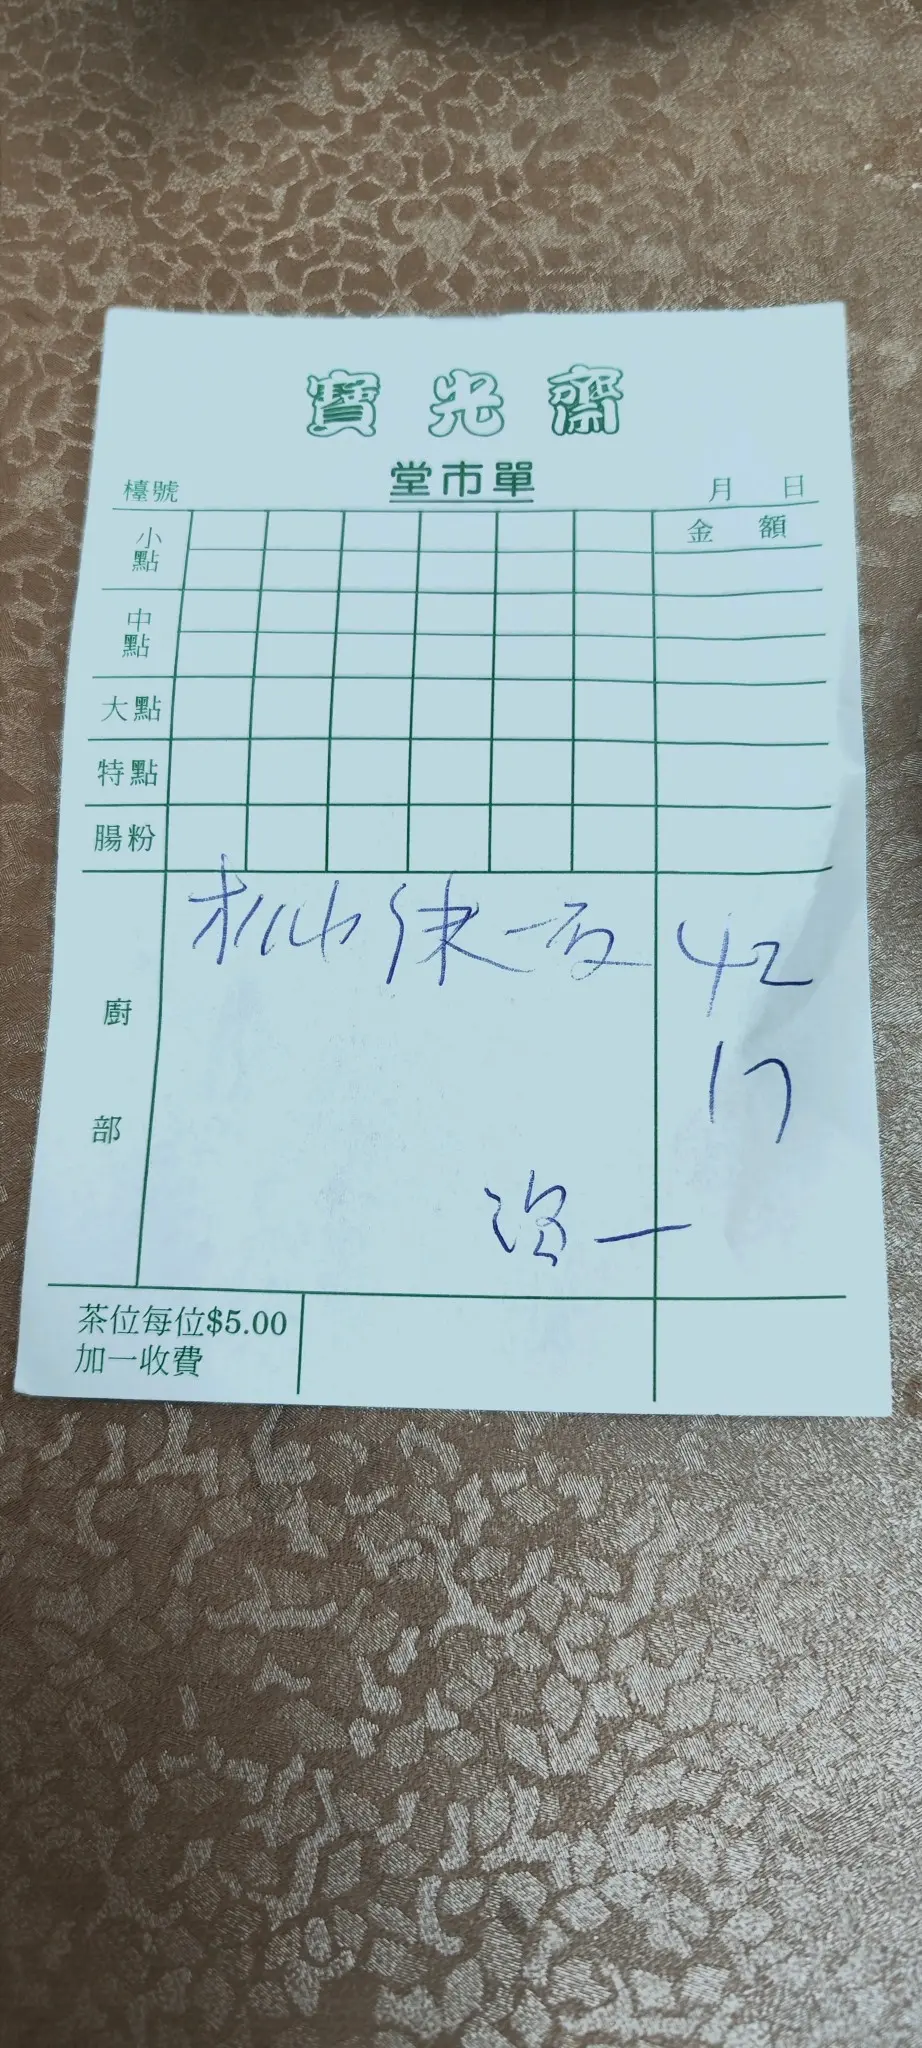 寶光齋
堂市單
檯號 月 日
小點 金額
中點
大點
特點
腸粉
廚部
42
17
一
茶位每位$5.00
加一收費